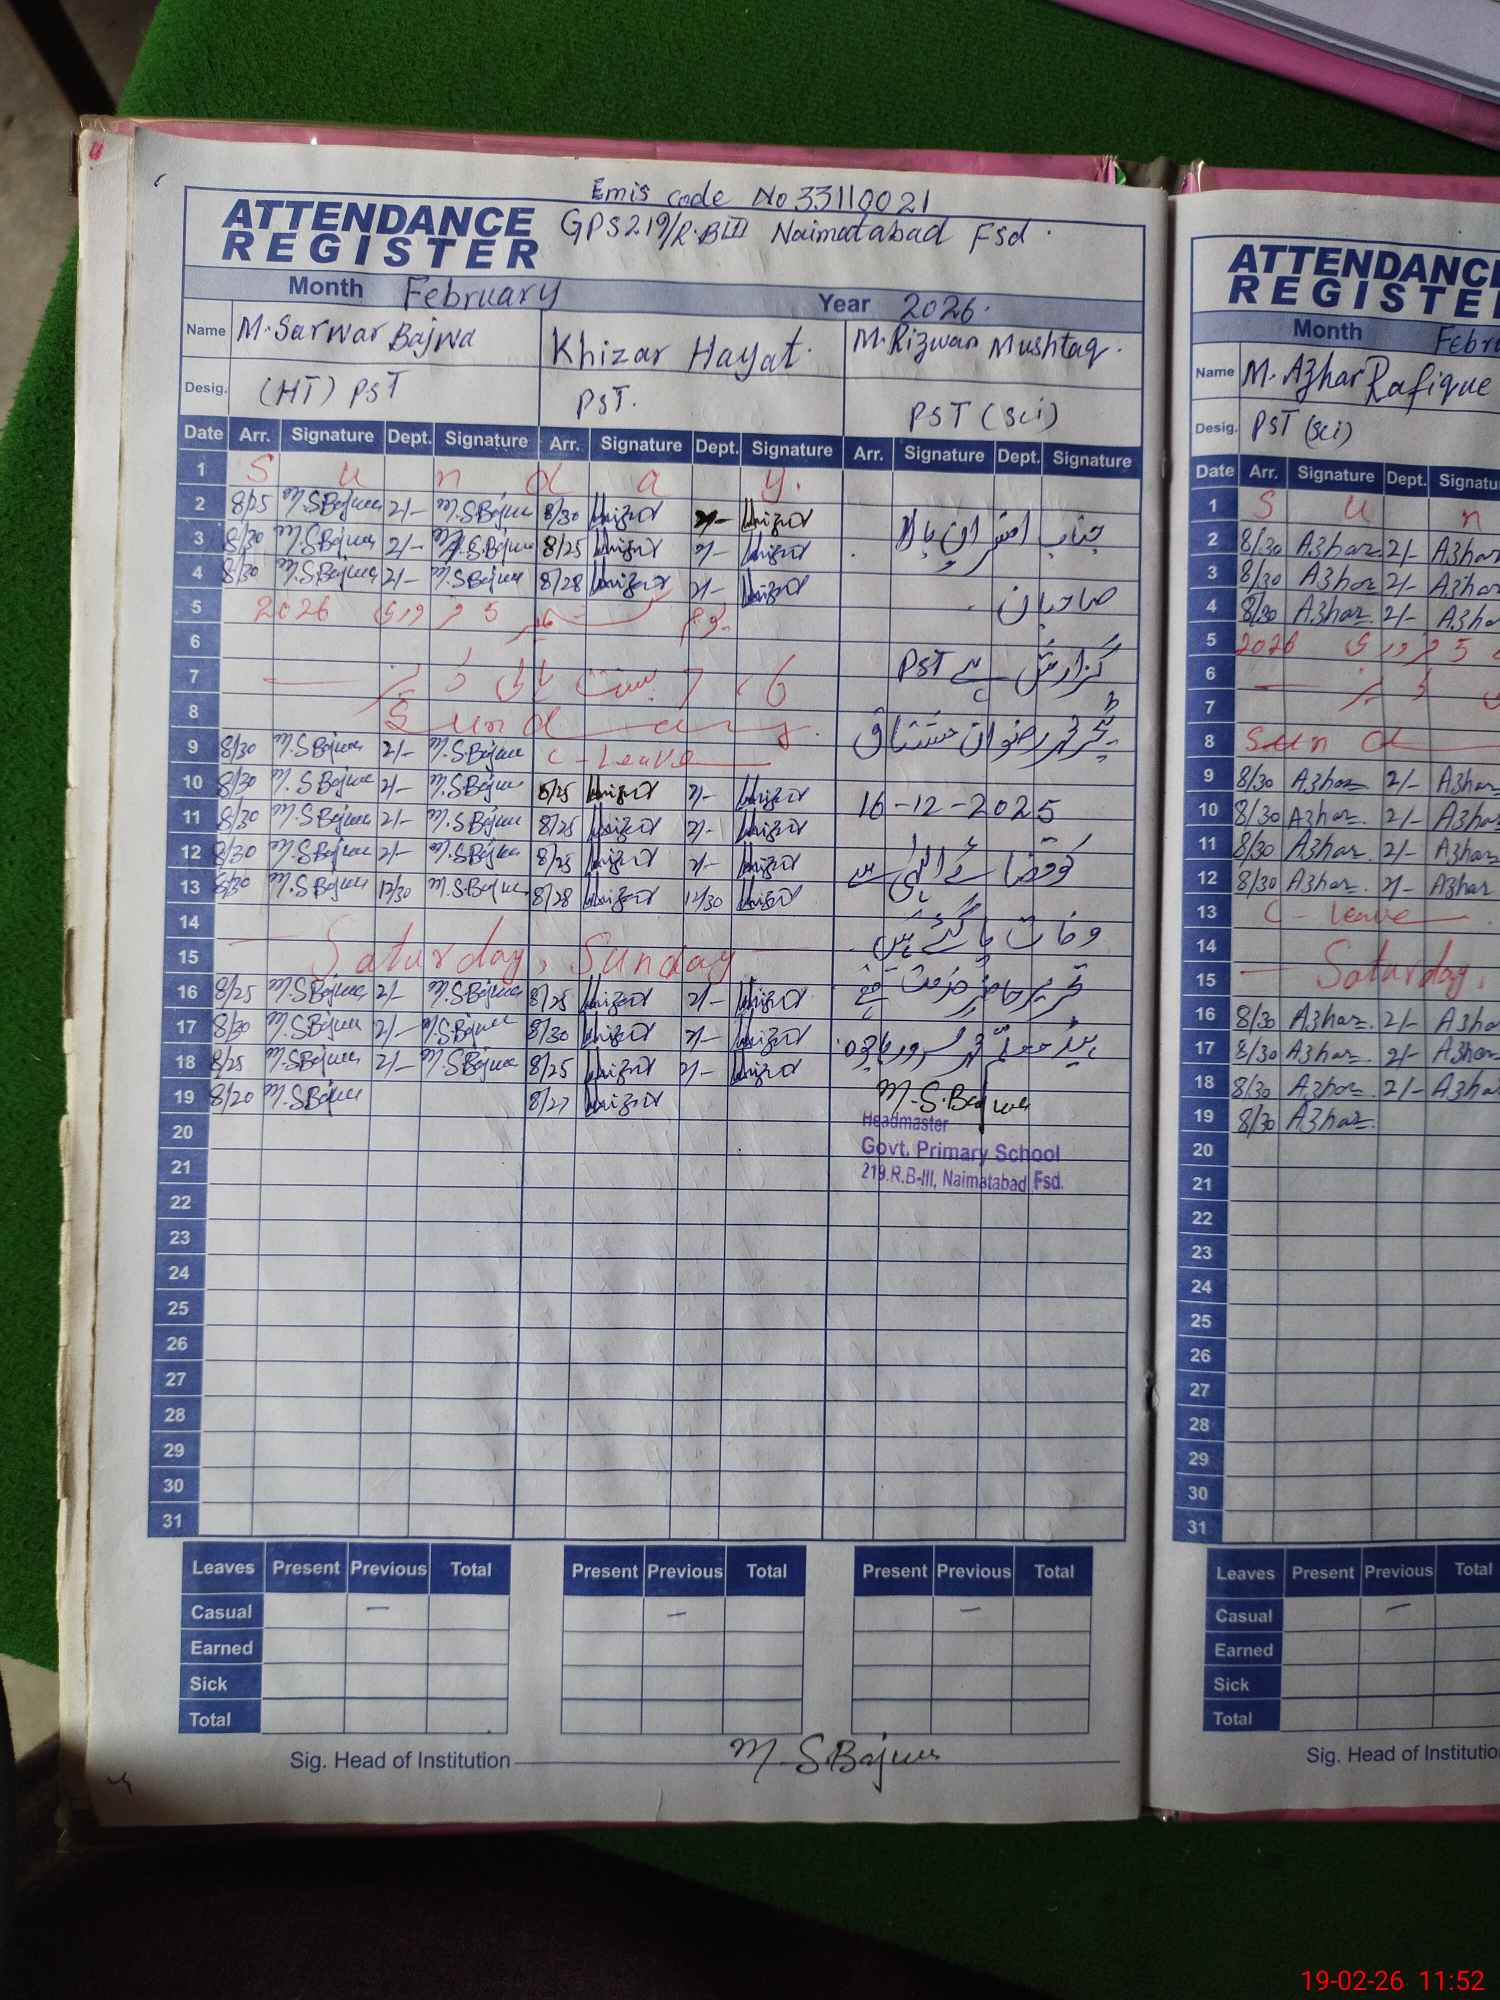 Emis code No 33110021
ATTENDANCE REGISTER
GPS219/R.BIII Naimatabad Fsd.
Month February Year 2026.
Name M.Sarwar Bajwa Khizar Hayat. M.Rizwan Mushtaq.
Desig. (HT) PST PST. PST (sci)
Date Arr. Signature Dept. Signature Arr. Signature Dept. Signature Arr. Signature Dept. Signature
1 S u n d a y.
2 8/25 M.SBajwa 2/- M.SBajwa 8/30 Khizar 2/- Khizar
3 8/30 M.SBajwa 2/- M.SBajwa 8/25 Khizar 2/- Khizar
4 8/30 M.SBajwa 2/- M.SBajwa 8/28 Khizar 2/- Khizar
5 5 فروری 2026
6
7 6، 7 بسنت
8 Sunday
9 8/30 M.SBajwa 2/- M.SBajwa C-Leave
10 8/30 M.SBajwa 2/- M.SBajwa 8/25 Khizar 2/- Khizar
11 8/30 M.SBajwa 2/- M.SBajwa 8/25 Khizar 2/- Khizar
12 8/30 M.SBajwa 2/- M.SBajwa 8/25 Khizar 2/- Khizar
13 8/30 M.SBajwa 12/30 M.SBajwa 8/28 Khizar 12/30 Khizar
14
15 Saturday, Sunday
16 8/25 M.SBajwa 2/- M.SBajwa 8/25 Khizar 2/- Khizar
17 8/30 M.SBajwa 2/- M.SBajwa 8/30 Khizar 2/- Khizar
18 8/25 M.SBajwa 2/- M.SBajwa 8/25 Khizar 2/- Khizar
19 8/20 M.SBajwa 8/27 Khizar
20
21
22
23
24
25
26
27
28
29
30
31
جناب افسران بالا
صاحبان
گزارش ہے PST
ٹیچر محمد رضوان مشتاق
16-12-2025
کو قضائے الہی سے
وفات پا گئے ہیں
تحریر حاضر خدمت ہے
ہیڈ معلم محمد سرور باجوہ
M.S.Bajwa
Headmaster
Govt. Primary School
219.R.B-III, Naimatabad Fsd.
Leaves Present Previous Total Present Previous Total Present Previous Total
Casual - - -
Earned
Sick
Total
Sig. Head of Institution M.SBajwa
ATTENDANC
REGISTE
Month Febru
Name M.Azhar Rafique
Desig. PST (sci)
Date Arr. Signature Dept. Signatu
1 S u n
2 8/30 Azhar 2/- Azhar
3 8/30 Azhar 2/- Azhar
4 8/30 Azhar 2/- Azhar
5 5 فروری 2026
6
7
8 Sun d
9 8/30 Azhar 2/- Azhar
10 8/30 Azhar. 2/- Azhar
11 8/30 Azhar. 2/- Azhar
12 8/30 Azhar. 2/- Azhar
13 C-Leave
14 Saturday,
15
16 8/30 Azhar. 2/- Azhar
17 8/30 Azhar. 2/- Azhar
18 8/30 Azhar. 2/- Azhar
19 8/30 Azhar.
20
21
22
23
24
25
26
27
28
29
30
31
Leaves Present Previous Total
Casual -
Earned
Sick
Total
Sig. Head of Institutio
19-02-26 11:52